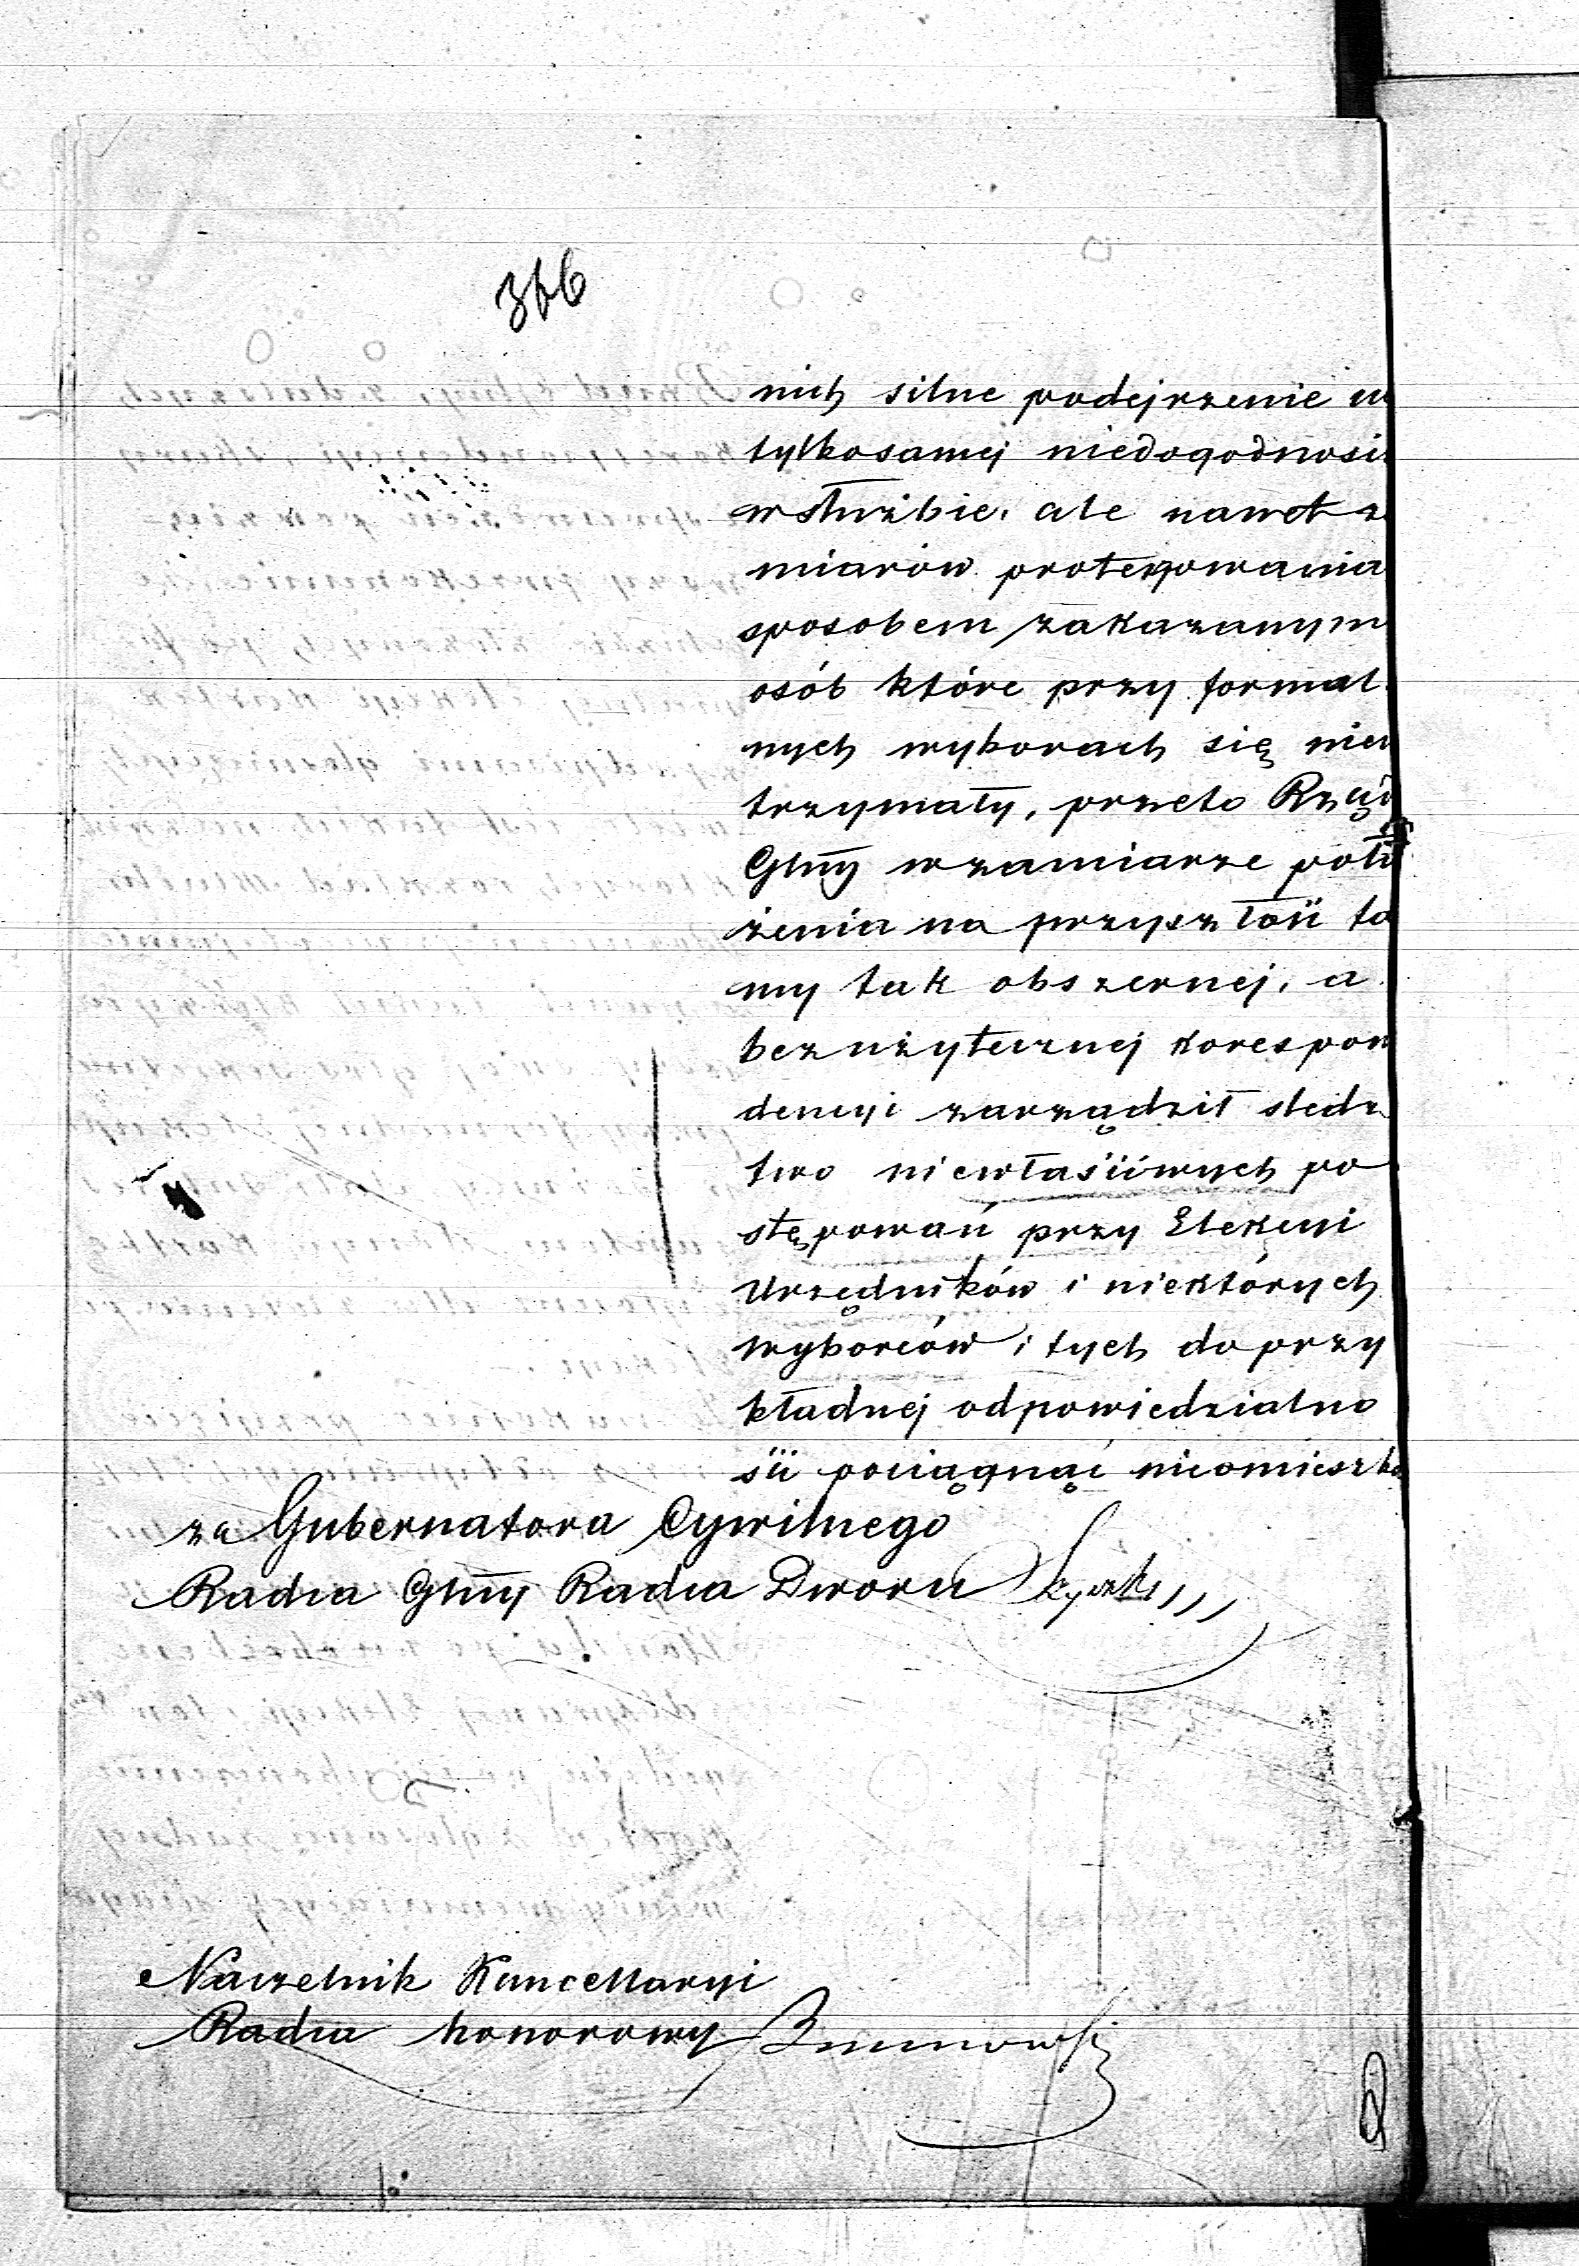 366
nich silne podejrzenie ni
tylko samej niedogodnosci
w służbie, ale nawet z
miarów protegowania
sposobem zakazanym
osób które przy formal
nych wyborach się nieu
trzymały, przeto Rząd
Głny w zamiarze poło
żenia na przyszłość ta
my tak obszernej, a
bezużytecznej korespon
dencyi zarządził sledz
two niewłaściwych po
stępowań przy Elekcyi
Urzędników i niektórych
wyborców i tych do przy
kładnej odpowiedzialno
ści pociągnąć nieomieszka
za Gubernatora Cywilnego
Radca Głny Radca Dworu
Naczelnik Kancellaryi
Radca honorowy